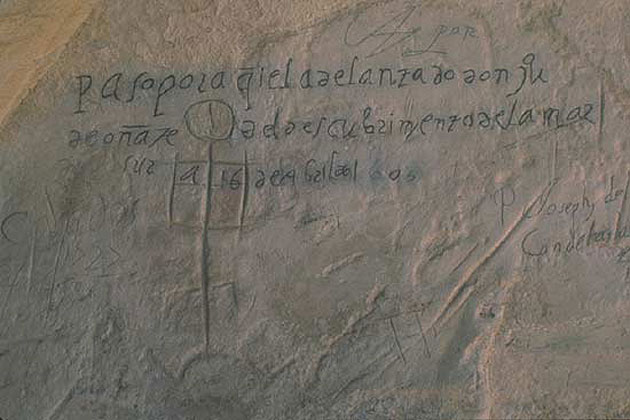 por
paso por aq̃i el adelantado don ju
de oñate al descubrimyento de la mar
sur a 16 de Abril
Joseph de
Candelaria